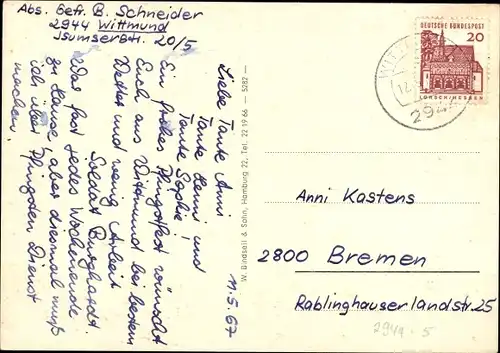 Abs. Gefr. B. Schneider
2944 Wittmund
Isumserstr. 20/5
11.5.67
Liebe Tante Anni
Tante Henni und
Tante Sophie,
Ein frohes Pfingstfest wünscht
Euch aus Wittmund bei bestem
Wetter und wenig Arbeit
Soldat Burghardt.
War fast jedes Wochenende
zu Hause, aber diesmal muß
ich über Pfingsten Dienst
machen.
W. Bindseil & Sohn, Hamburg 22, Tel. 22 19 66 — 5282 —
DEUTSCHE BUNDESPOST
20
LORSCH/HESSEN
12.
294
Anni Kastens
2800 Bremen
Rablinghauserlandstr. 25
2944 5